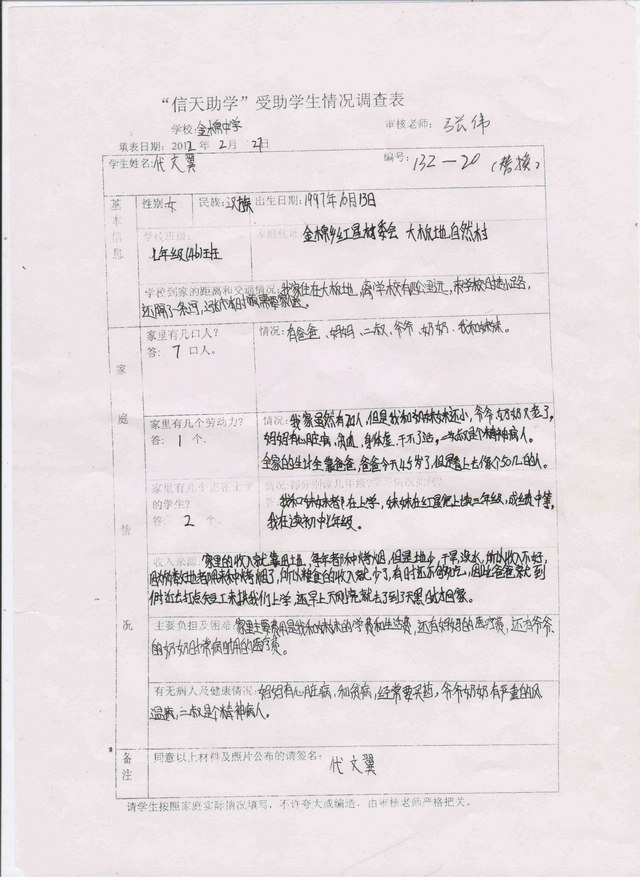 “信天助学”受助学生情况调查表
学校:金棉中学 审核老师: 张伟
填表日期: 2012 年 2 月 27日
学生姓名:代文翼 编号: 132—20 (替换)
基本信息
性别:女 民族:汉族 出生日期:1997年10月13日
学校班级: 家庭住址:
金棉乡红星村委会 大板地自然村
七年级(46)班
学校到家的距离和交通情况:我家住在大板地,离学校有四公里远,来学校时走小路,
还隔了一条河,
家庭情况
家里有几口人? 情况:有爸爸、妈妈、二叔、爷爷、奶奶、我和妹妹。
答: 7 口人。
家里有几个劳动力? 情况:我家虽然有7口人,但是我和妹妹还小,爷爷奶奶又老了,
答: 1 个. 妈妈有心脏病,贫血,身体差,干不了活。二叔是个精神病人。
全家的生计全靠爸爸,爸爸今天45岁了,但是看上去像个50几的人。
家里有几个正在上学的学生? 情况:都分别读几年级?学习情况如何?
答: 2 个. 我和妹妹都在上学,妹妹在红星完上读三年级,成绩中等,
我在读初中七年级.
收入来源: 家里的收入就靠田土,每年都种烤烟,但是地少,干旱没水,所以收入不好,
还早上天刚亮就去了到了天黑时才回家。
主要负担及困难:家里主要费用是我和妹妹的学费和生活费,还有妈妈的医疗费,还有爷爷
的奶奶时常病时用的医疗费。
有无病人及健康情况:妈妈有心脏病,和贫病,经常要买药,爷爷奶奶有严重的风
湿病,二叔是个精神病人。
备注
同意以上材料及照片公布的请签名:
代文翼
请学生按照家庭实际情况填写,不许夸大或编造、由审核老师严格把关。